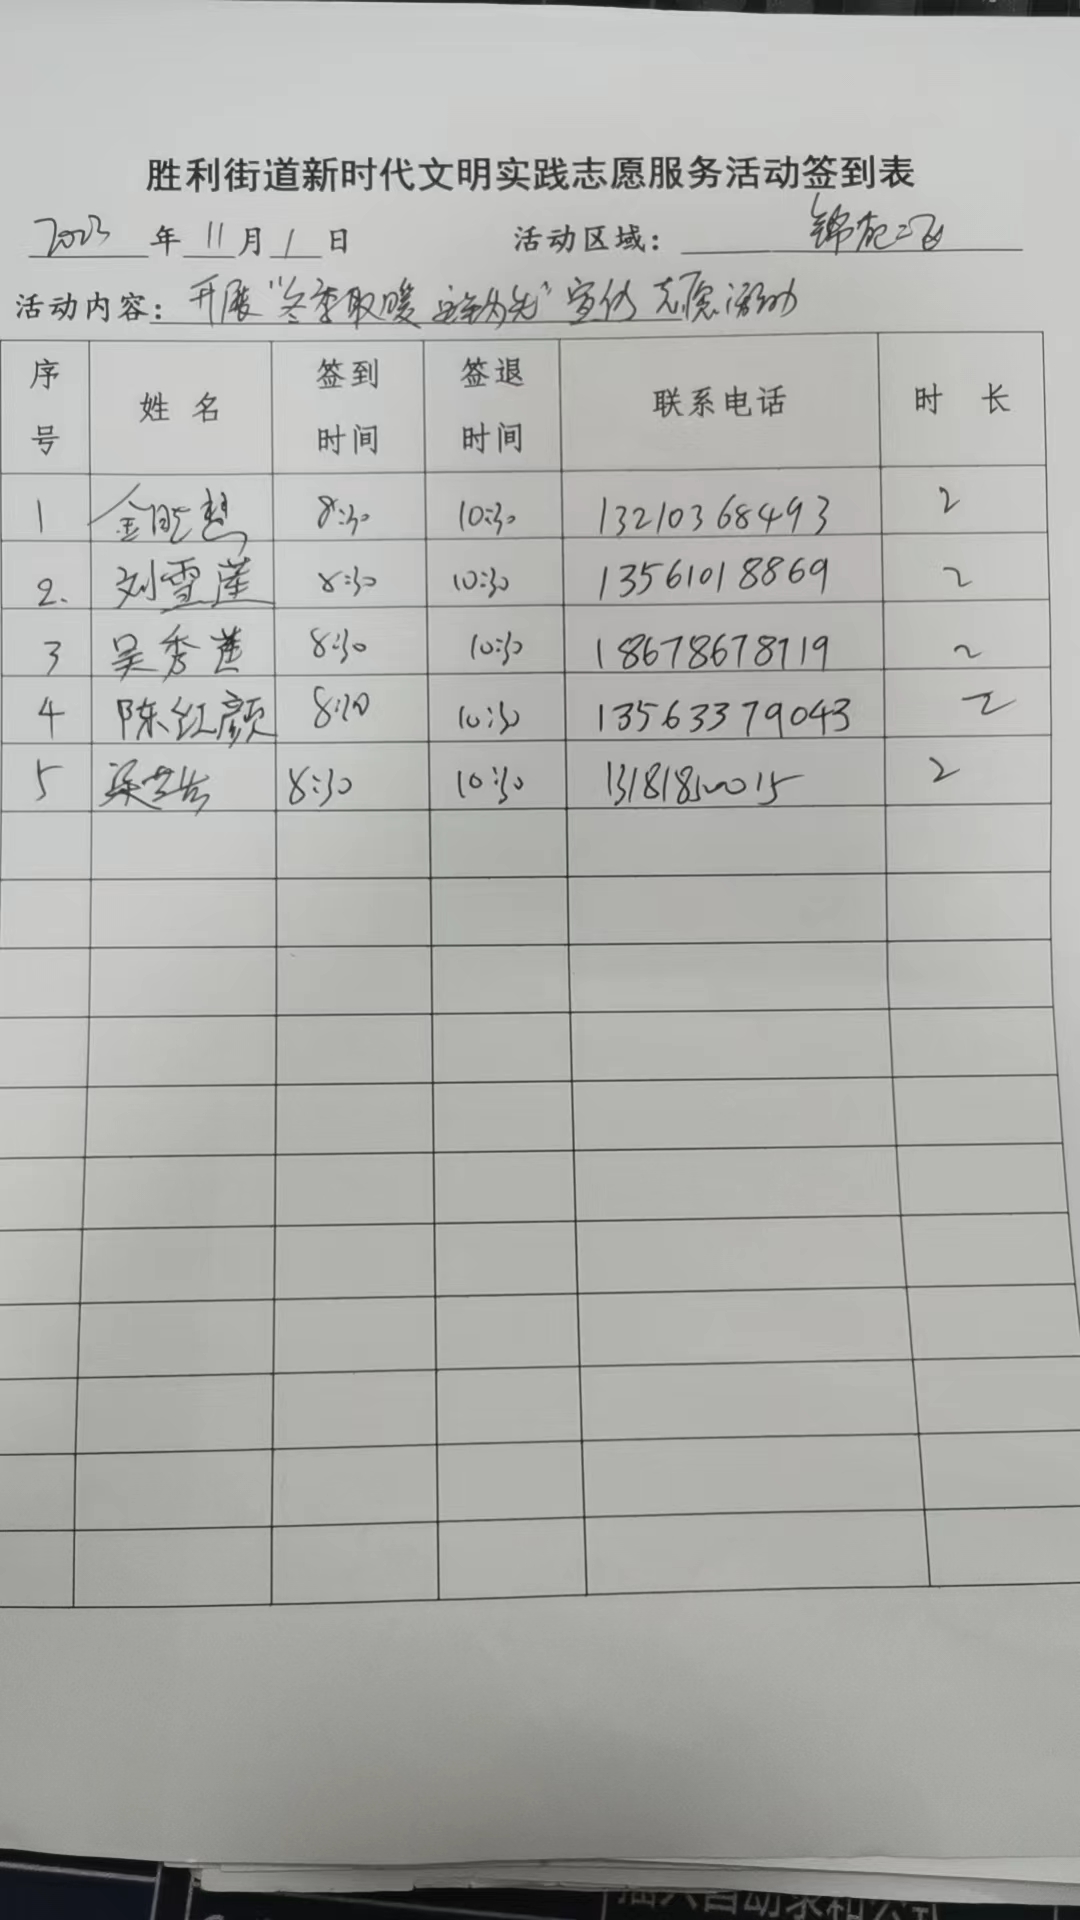 胜利街道新时代文明实践志愿服务活动签到表
2023年11月1日 活动区域：锦苑二区
活动内容：开展“冬季取暖 安全为先”宣传志愿活动
序号 姓名 签到时间 签退时间 联系电话 时长
1 金晓慧 8:30 10:30 13210368493 2
2. 刘雪莲 8:30 10:30 13561018869 2
3 吴秀莲 8:30 10:30 18678678719 2
4 陈红颜 8:30 10:30 13563379043 2
5 8:30 10:30 13181850015 2